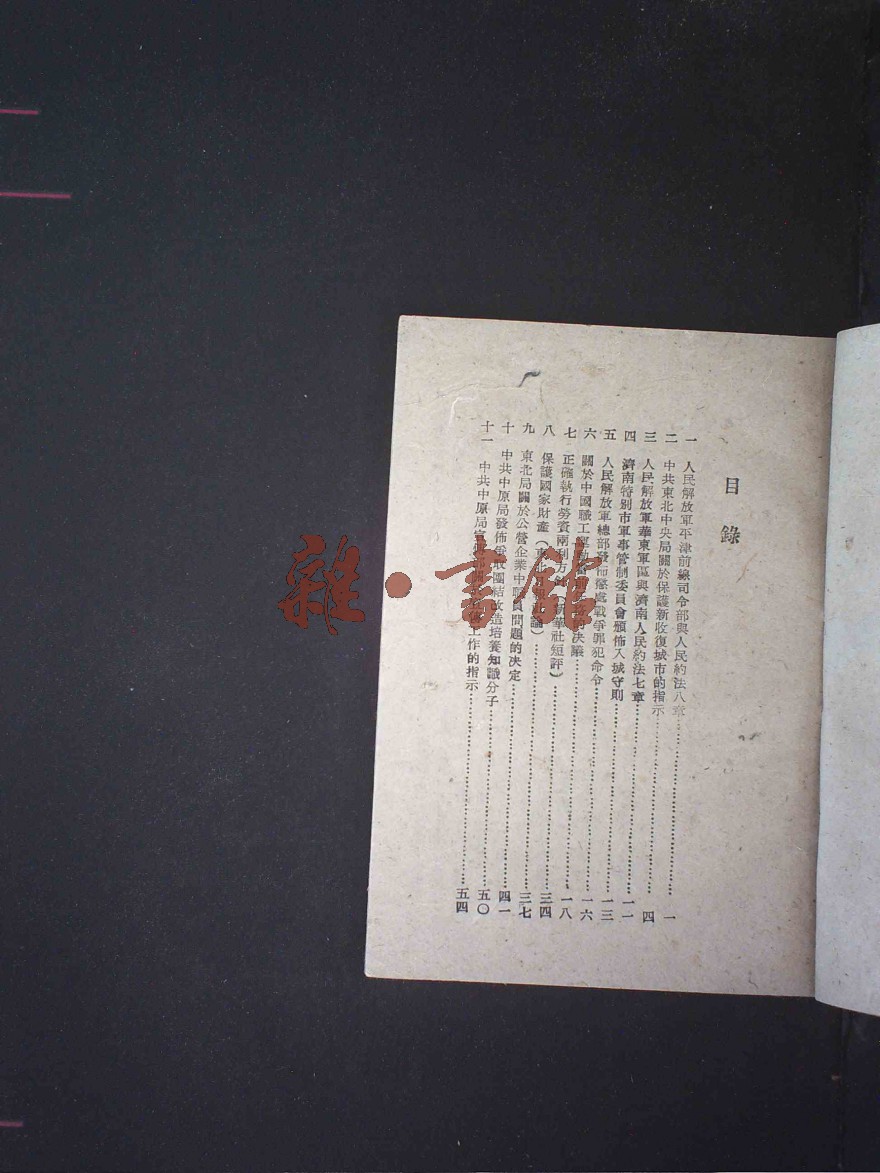 目錄
一 人民解放軍平津前線司令部與人民約法八章 一
二 中共東北中央局關於保護新收復城市的指示 四
三 人民解放軍華東軍區與濟南人民約法七章 一一
四 濟南特別市軍事管制委員會頒佈入城守則 一三
五 人民解放軍總部發佈懲處戰爭罪犯命令 一六
六 關於中國職工運動當前任務的決議 一八
七 正確執行勞資兩利方針(新華社短評) 三四
八 保護國家財產(東北日報社論) 三七
九 東北局關於公營企業中職員問題的決定 四一
十 中共中原局發佈爭取團結改造培養知識分子 五〇
十一 中共中原局宣 工作的指示 五四
雜·書館